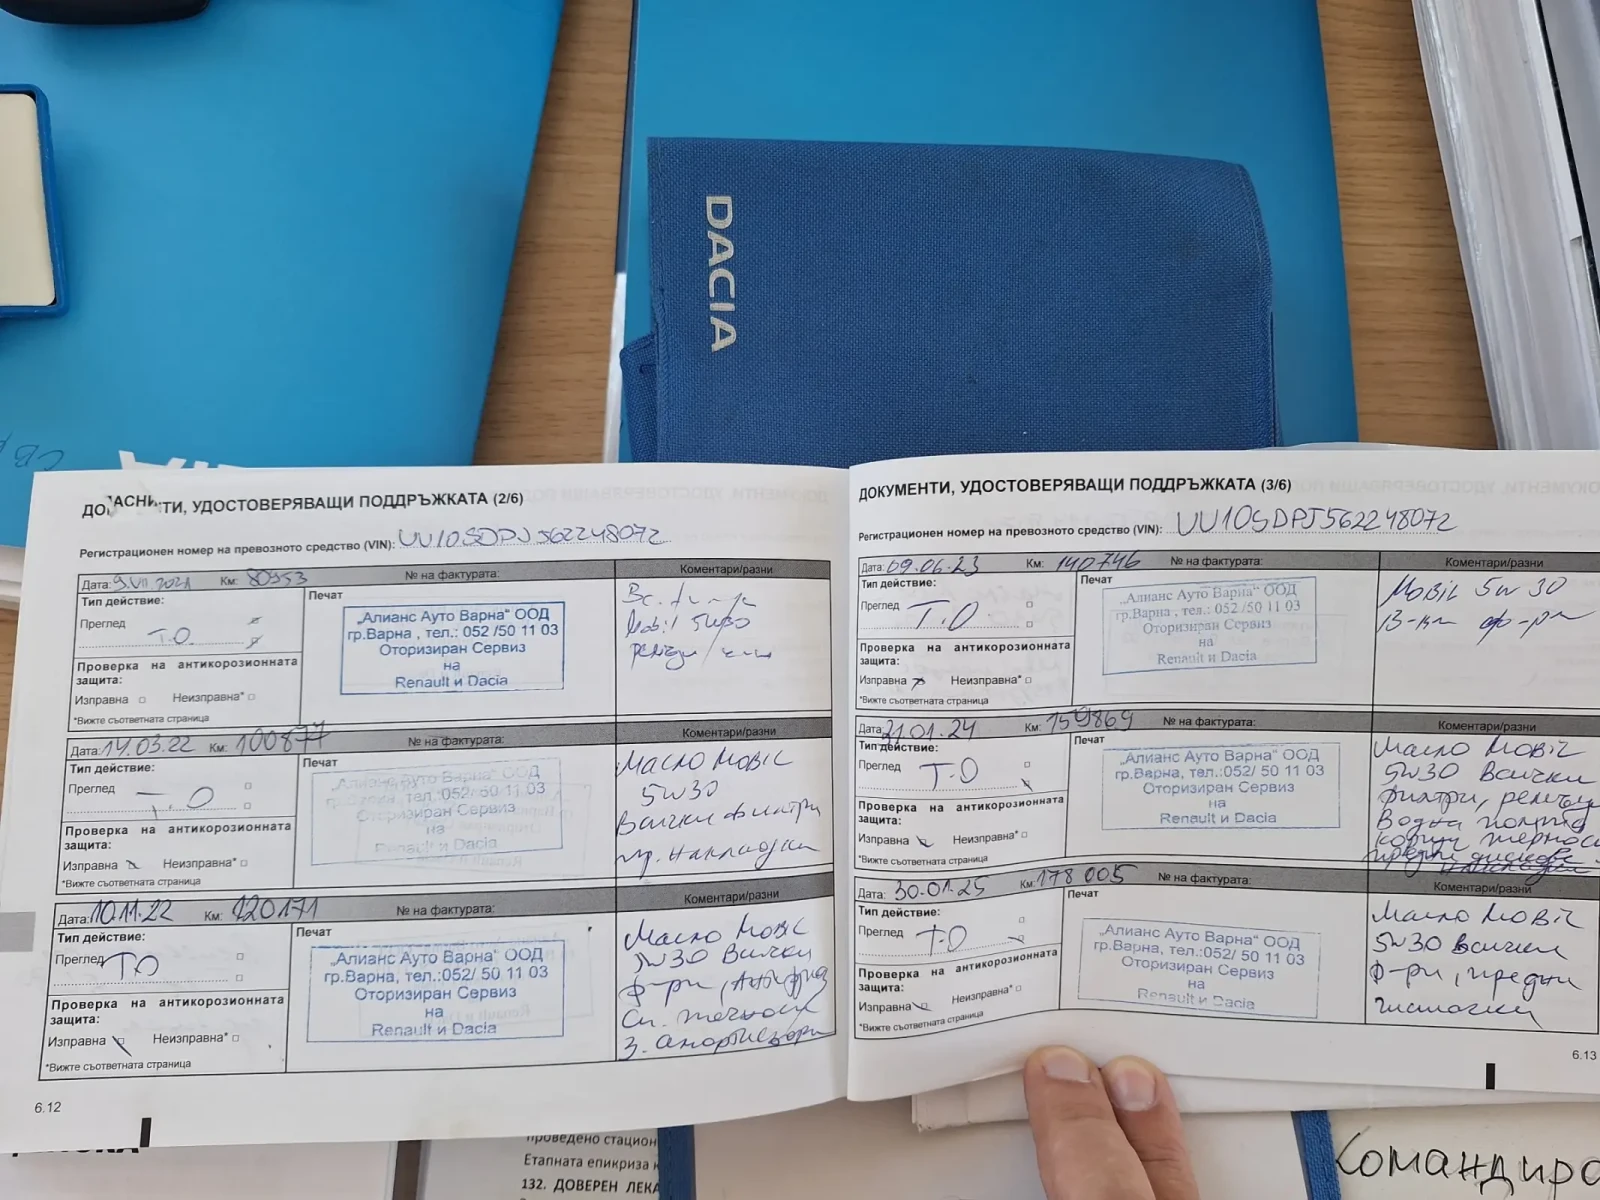 DACIA
ДОКУМЕНТИ, УДОСТОВЕРЯВАЩИ ПОДДРЪЖКАТА (2/6)
Регистрационен номер на превозното средство (VIN): UU10SDPJ562248072
Дата: 9.VII 2021 Км: 80953 № на фактурата:
Коментари/разни
Тип действие:
Преглед
Т.О
Проверка на антикорозионната
защита:
Изправна Неизправна*
*Вижте съответната страница
Печат
„Алианс Ауто Варна“ ООД
гр.Варна , тел.: 052 /50 11 03
Оторизиран Сервиз
на
Renault и Dacia
Mobil 5W30
Дата: 14.03.22 Км: 100877 № на фактурата:
Коментари/разни
Тип действие:
Преглед
Т.О
Проверка на антикорозионната
защита:
Изправна Неизправна*
*Вижте съответната страница
Печат
„Алианс Ауто Варна“ ООД
гр.Варна, тел.:052/ 50 11 03
Оторизиран Сервиз
на
Renault и Dacia
Масло Мовіс
5w30
Всички филтри
пр. накладки
Дата: 10.11.22 Км: 120171 № на фактурата:
Коментари/разни
Тип действие:
Преглед
ТО
Проверка на антикорозионната
защита:
Изправна Неизправна*
*Вижте съответната страница
Печат
„Алианс Ауто Варна“ ООД
гр.Варна, тел.:052/ 50 11 03
Оторизиран Сервиз
на
Renault и Dacia
Масло Мовіс
5w30 Всички
ф-ри, Антифриз
Сп. течност
з. амортисьори
6.12
ДОКУМЕНТИ, УДОСТОВЕРЯВАЩИ ПОДДРЪЖКАТА (3/6)
Регистрационен номер на превозното средство (VIN): UU10SDPJ562248072
Дата: 09.06.23 Км: 140746 № на фактурата:
Коментари/разни
Тип действие:
Преглед
Т.О
Проверка на антикорозионната
защита:
Изправна Неизправна*
*Вижте съответната страница
Печат
„Алианс Ауто Варна“ ООД
гр.Варна , тел.: 052 /50 11 03
Оторизиран Сервиз
на
Renault и Dacia
Mobil 5w30
В-ки ф-ри
Дата: 31.01.24 Км: 159869 № на фактурата:
Коментари/разни
Тип действие:
Преглед
Т.О
Проверка на антикорозионната
защита:
Изправна Неизправна*
*Вижте съответната страница
Печат
„Алианс Ауто Варна“ ООД
гр.Варна, тел.:052/ 50 11 03
Оторизиран Сервиз
на
Renault и Dacia
Масло Мовіс
5w30 Всички
филтри, ремъци
Водна помпа
предни дискове
накладки
Дата: 30.01.25 Км: 178005
Коментари/разни
Тип действие:
Преглед
Т.О
Проверка на антикорозионната
защита:
Изправна Неизправна*
*Вижте съответната страница
Печат
„Алианс Ауто Варна“ ООД
гр.Варна, тел.:052/ 50 11 03
Оторизиран Сервиз
на
Renault и Dacia
Масло Мовіс
5w30 Всички
ф-ри, предни
чистачки
6.13
проведено стацион
Етапната епикриза
132. ДОВЕРЕН ЛЕКА
Командиро